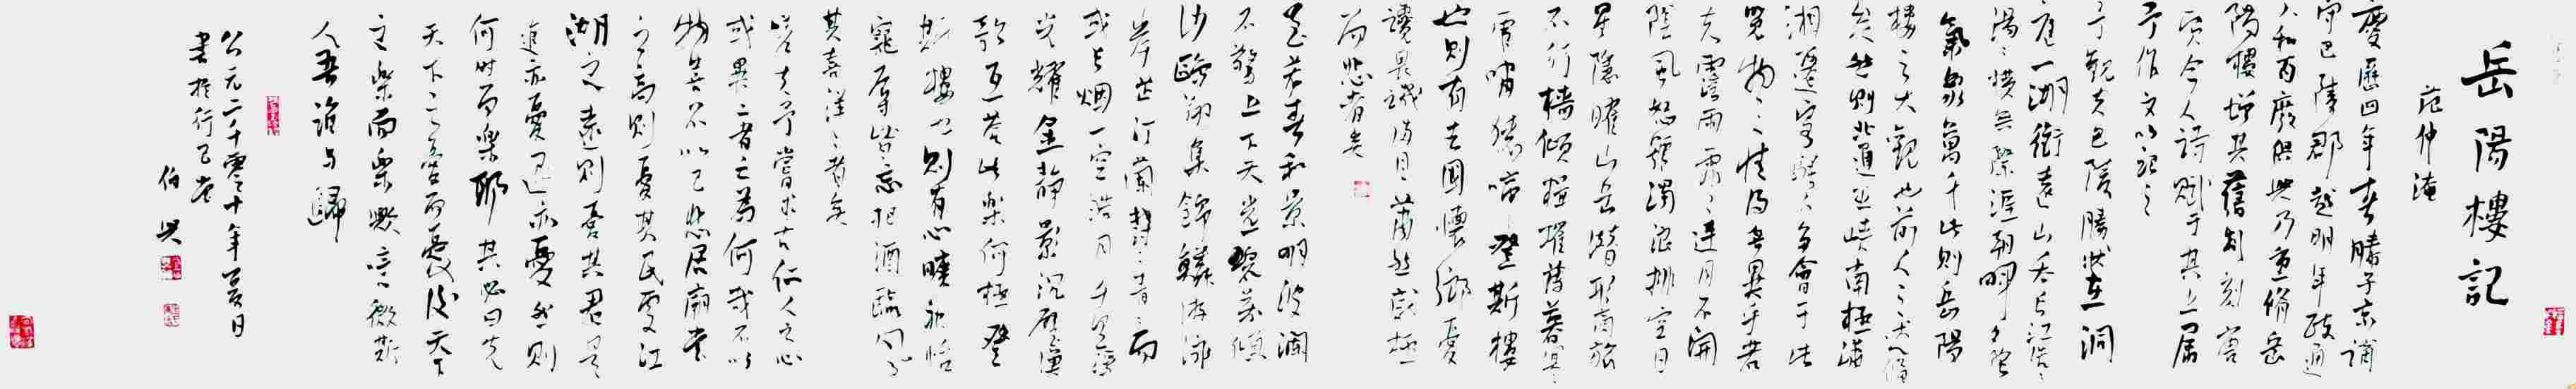 岳陽樓記
范仲淹
慶歷四年春滕子京謫
守巴陵郡越明年政通
人和百廢俱興乃重脩岳
陽樓增其舊制刻唐
賢今人詩賦于其上屬
予作文以記之
予觀夫巴陵勝狀在洞
庭一湖銜遠山吞長江浩浩
湯湯橫無際涯朝暉夕陰
氣象萬千此則岳陽
樓之大觀也前人之述備
矣然則北通巫峽南極瀟
湘遷客騷人多會于此
覽物之情得無異乎若
夫霪雨霏霏連月不開
陰風怒號濁浪排空日
星隱曜山岳潛形商旅
不行檣傾楫摧薄暮冥冥
虎嘯猿啼登斯樓
也則有去國懷鄉憂
讒畏譏滿目蕭然感極
而悲者矣
至若春和景明波瀾
不驚上下天光一碧萬頃
沙鷗翔集錦鱗游泳
岸芷汀蘭郁郁青青而
或長烟一空皓月千里浮
光耀金靜影沉璧漁
歌互答此樂何極登
斯樓也則有心曠神怡
寵辱皆忘把酒臨風
其喜洋洋者矣
嗟夫予嘗求古仁人之心
或異二者之為何哉不以
物喜不以己悲居廟堂
之高則憂其民處江
湖之遠則憂其君是
進亦憂退亦憂然則
何時而樂耶其必曰先
天下之憂而憂後天下
之樂而樂歟噫微斯
人吾誰與歸
公元二千零十年夏日
書於行己堂
伯興